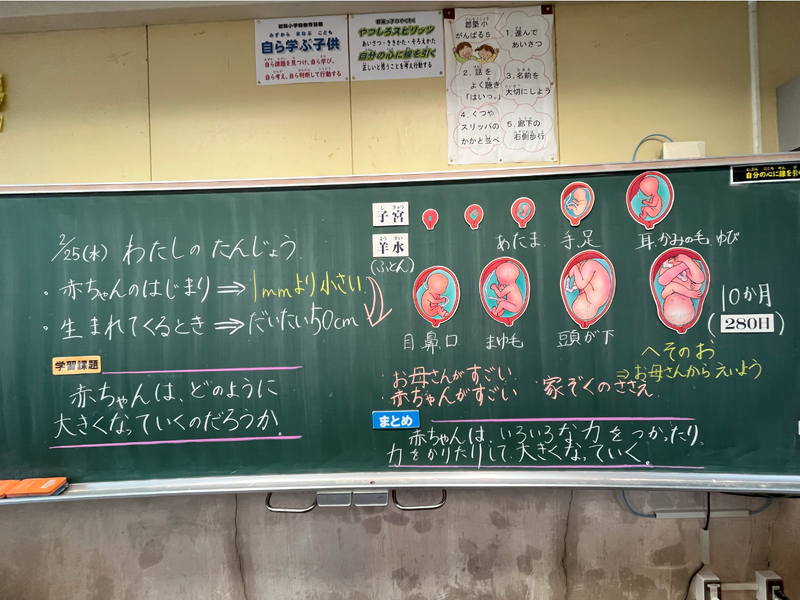 自ら学ぶ子供
みずから まなぶ こども
自ら課題を見つけ、自ら学び、
自ら考え、自ら判断して行動する
やつしろスピリッツ
あいさつ・ききかた・そろえかた
自分の心に線を引く
正しいと思うことを考え行動する
郡築小
がんばる5
1. 進んで
あいさつ
2. 話を
よく聴き
「はいっ。」
3. 名前を
大切にしよう
4. くつや
スリッパの
かかと並べ
5. 廊下の
右側歩行
自分の心に線を引く
2/25(水) わたしの たんじょう
・赤ちゃんのはじまり⇒1mmより小さい
・生まれてくるとき⇒だいたい50cm
学習課題
赤ちゃんは、どのように
大きくなっていくのだろうか。
し きゅう
子宮
よう すい
羊水
(ふとん)
あたま 手、足 耳、かみの毛、ゆび
目、鼻、口 まゆ毛 頭が下
10か月
(280日)
へそのお
⇒お母さんからえいよう
・お母さんがすごい
・赤ちゃんがすごい 家ぞくのささえ
まとめ
赤ちゃんは、いろいろな力をつかったり、
力をかりたりして、大きくなっていく。